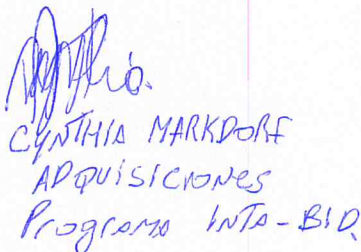 CYNTHIA MARKDORF
ADQUISICIONES
Programa INTA-BID